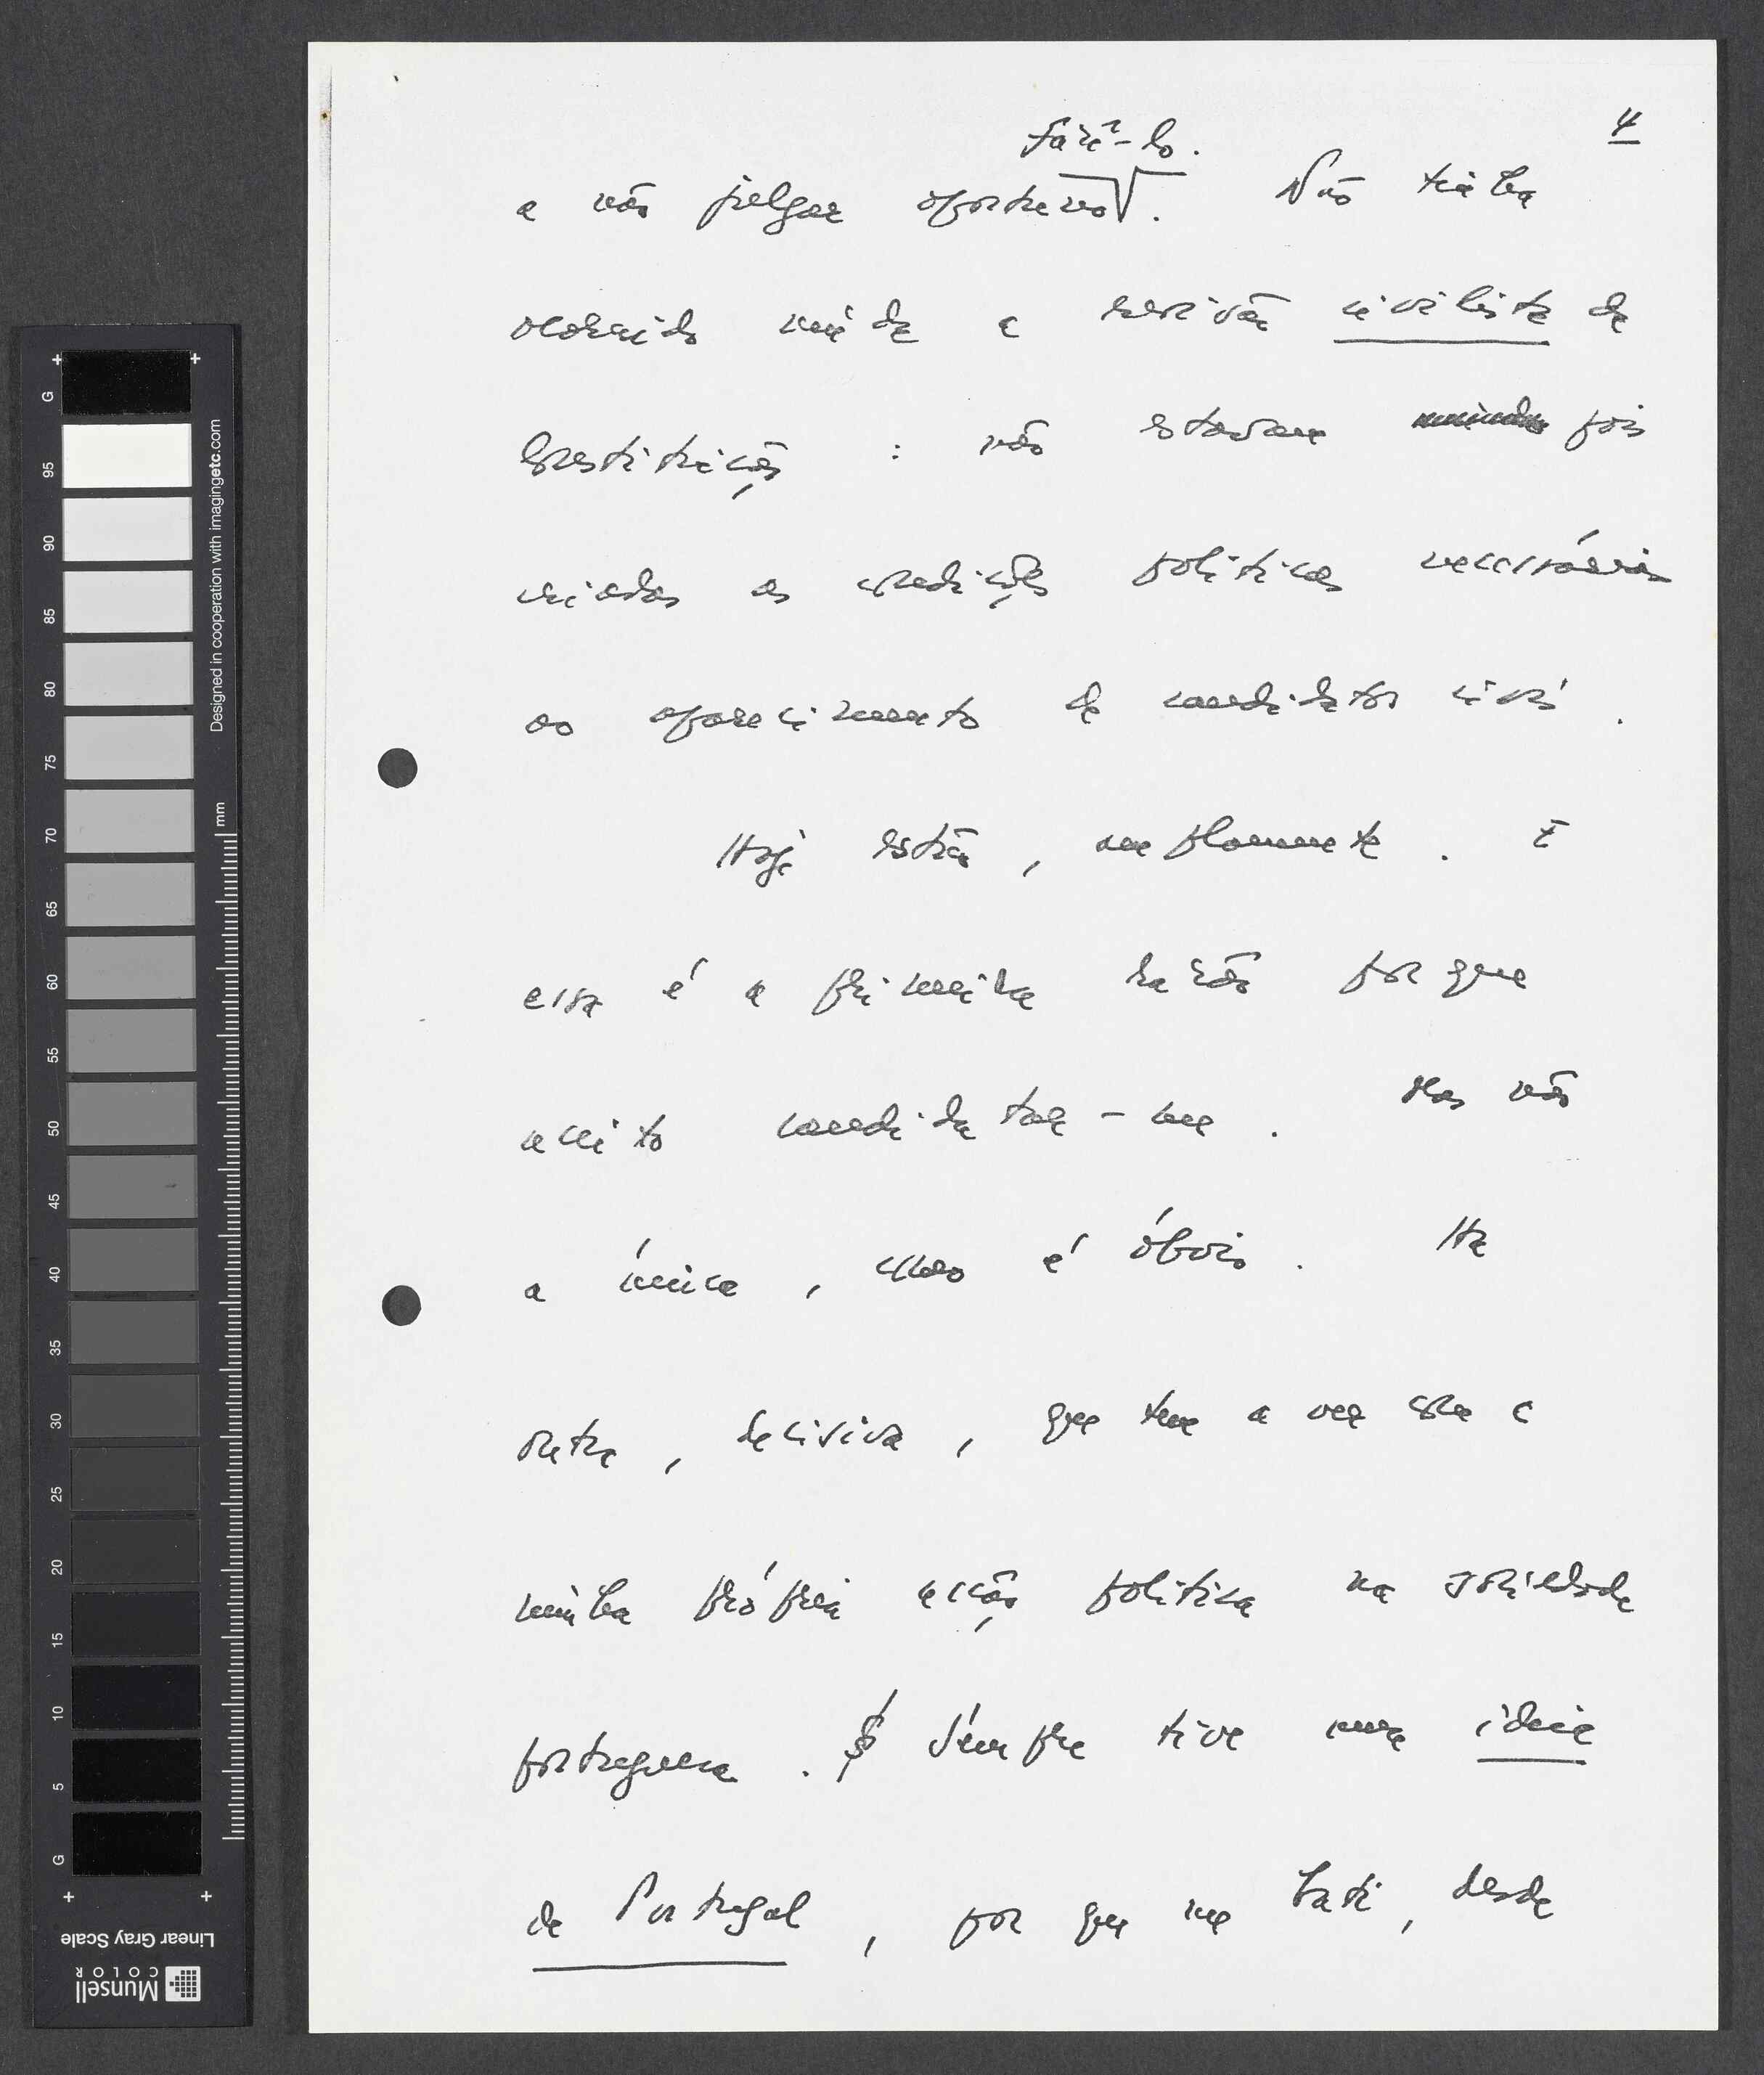 4
fazê-lo.
a não julgar oportuno. Não tinha
ocorrido ainda a revisão civilista da
Constituição : não estavam pois
criadas as condições políticas necessárias
ao aparecimento de candidatos civis.
Hoje estão, amplamente. E
essa é a primeira razão por que
aceito candidatar-me. Mas não
a única, como é óbvio. Há
outra, decisiva, que tem a ver com a
minha própria acção política na sociedade
portuguesa. Sempre tive uma ideia
de Portugal, por que me bati, desde
G 95 90 85 80 75 70 65 60 55 50 45 40 35 30 25 20 15 10 5 G
mm
Designed in cooperation with imagingetc.com
Linear Gray Scale
Munsell
COLOR